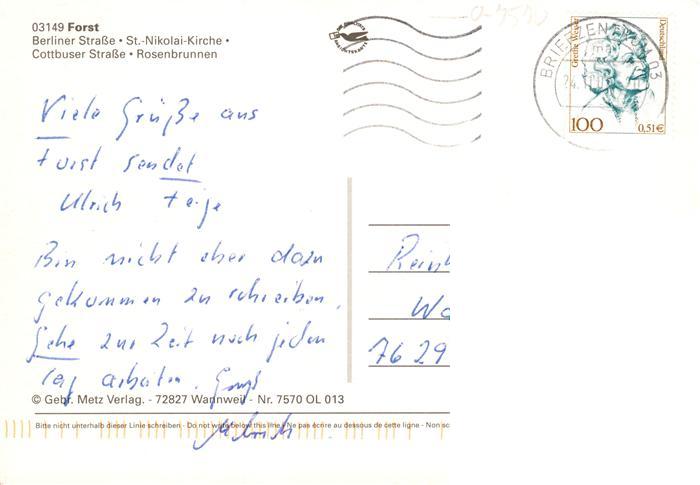 03149 Forst
Berliner Straße • St.-Nikolai-Kirche •
Cottbuser Straße • Rosenbrunnen
Viele Grüße aus
Forst sendet
Ulrich Feige
Bin nicht eher dazu
gekommen zu schreiben.
Gehe zur Zeit noch jeden
Tag arbeiten. Gruß
Ulrich
© Gebr. Metz Verlag. - 72827 Wannweil - Nr. 7570 OL 013
Bitte nicht unterhalb dieser Linie schreiben - Do not write below this line - Ne pas écrire au dessous de cette ligne - Non sc
BRIEFZENTRUM 03
Grethe Weiser
Deutschland
100
0,51€
Rein
Wa
76 29